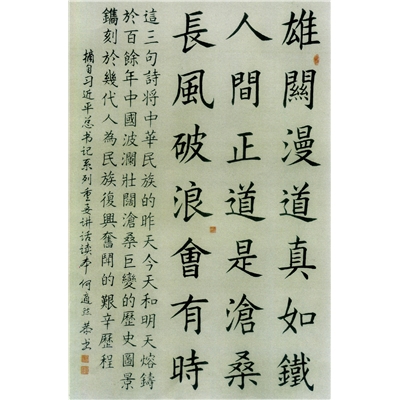 雄關漫道真如鐵
人間正道是滄桑
長風破浪會有時
這三句詩將中華民族的昨天今天和明天熔鑄
於百餘年中國波瀾壯闊滄桑巨變的歷史圖景
鐫刻於幾代人為民族復興奮鬥的艱辛歷程
摘自习近平总书记系列重要讲话读本 何 恭书